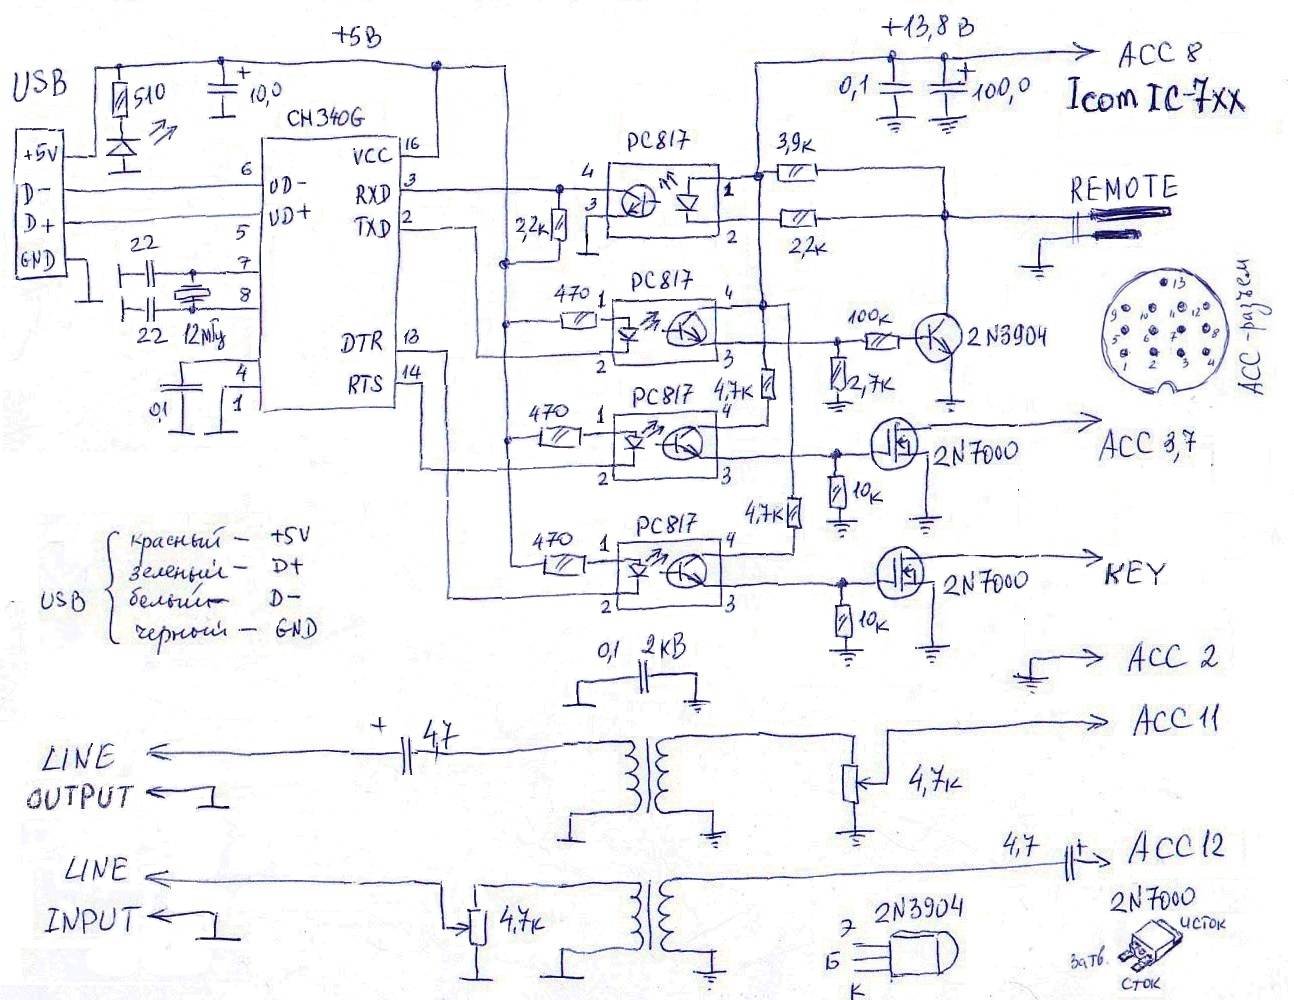 +5В
+13,8 В
USB
510
+
10,0
0,1
+
100,0
ACC 8
Icom IC-7xx
CH340G
+5V
D-
D+
GND
6
5
7
8
4
1
UD-
UD+
VCC
RXD
TXD
DTR
RTS
16
3
2
13
14
22
22
12мГц
0,1
PC817
4
3
1
2
2,2к
3,9к
2,2к
REMOTE
470
PC817
1
2
4
3
100к
2N3904
2,7к
4,7к
470
PC817
1
2
4
3
10к
2N7000
ACC 3,7
4,7к
470
PC817
1
2
4
3
10к
2N7000
KEY
13
9
10
11
12
5
6
7
8
1
2
3
4
ACC-разъем
USB
красный - +5V
зеленый - D+
белый - D-
черный - GND
0,1 2кВ
ACC 2
LINE
OUTPUT
+
4,7
4,7к
ACC 11
LINE
INPUT
4,7к
4,7
+
ACC 12
2N3904
Э
Б
К
2N7000
исток
затв.
сток